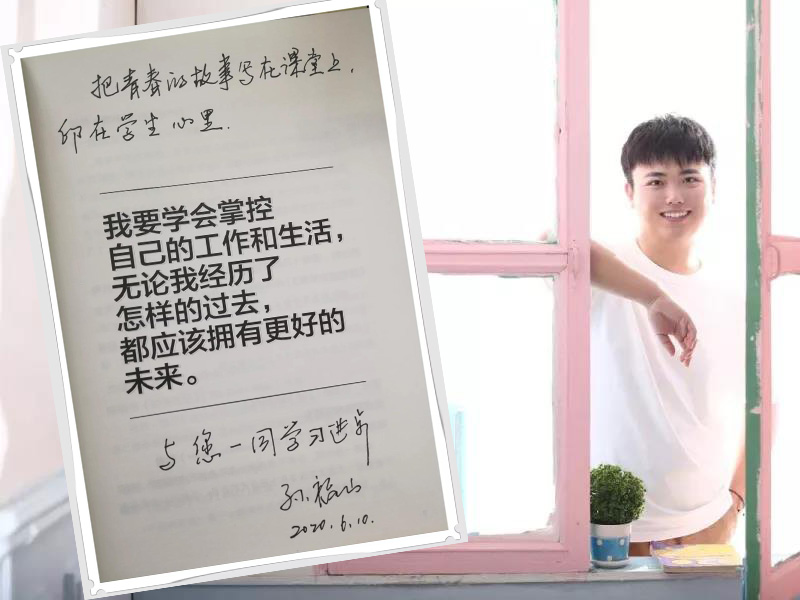 把青春的故事写在课堂上,
印在学生心里.
我要学会掌控
自己的工作和生活，
无论我经历了
怎样的过去，
都应该拥有更好的
未来。
与您一同学习进步
孙
2020.6.10.